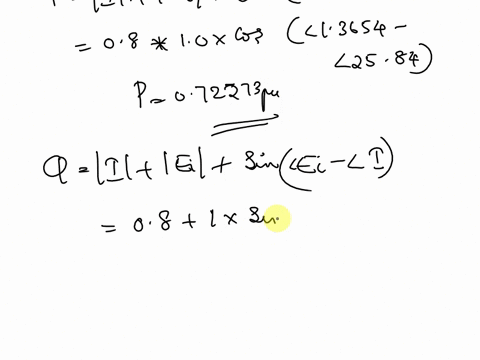 = 0.8 * 1.0 x Cos (∠1.3654 -
∠25.84)
P = 0.72273pu
Q = |I| + |Ei| + Sin(∠Ei - ∠I)
= 0.8 + 1 x Sin